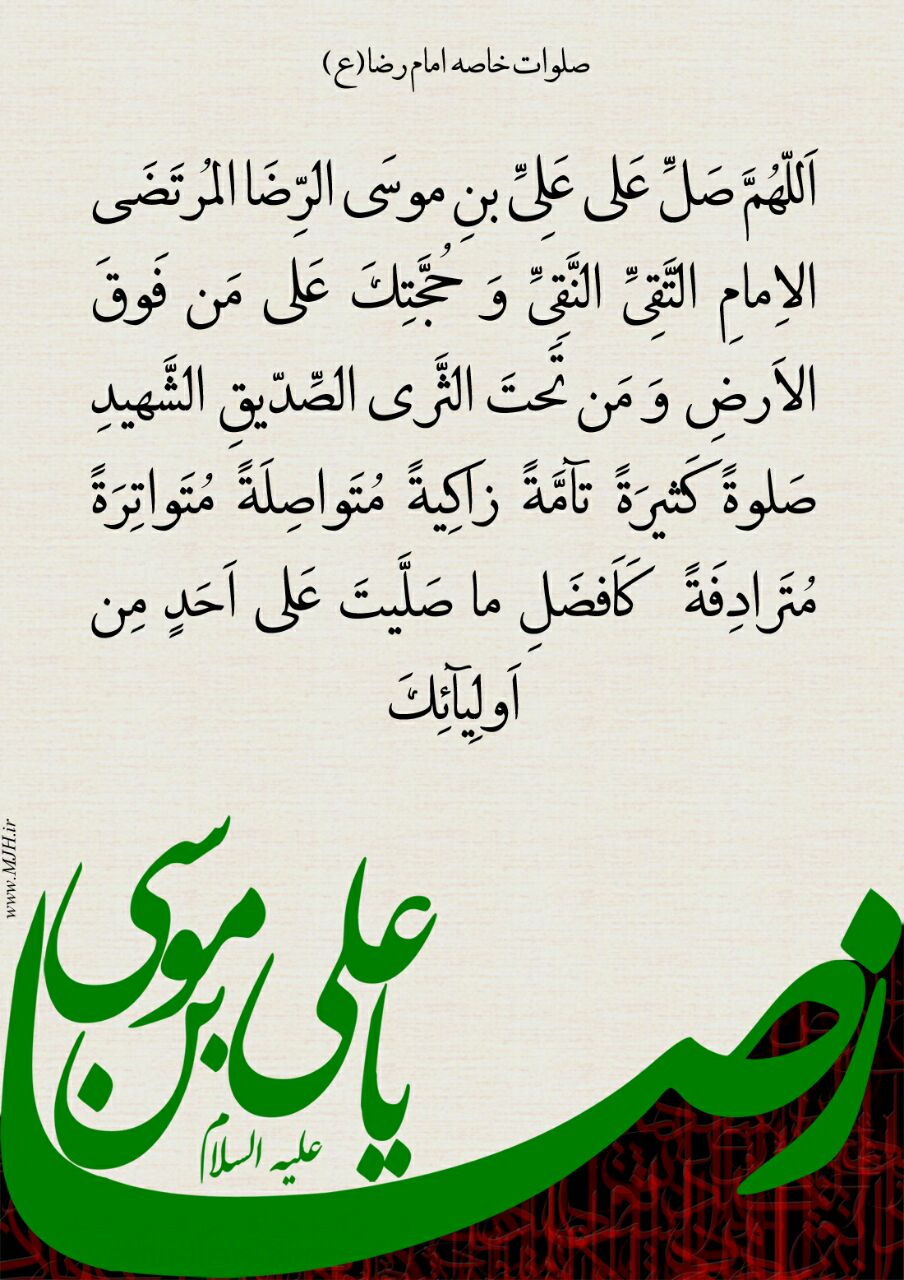 صلوات خاصه امام رضا(ع)
اَللّهُمَّ صَلِّ عَلی عَلِیِّ بنِ موسَی الرِّضَا المُرتَضَی
الاِمامِ التَّقِیِّ النَّقِیِّ وَ حُجَّتِكَ عَلی مَن فَوقَ
الاَرضِ وَ مَن تَحتَ الثَّری الصِّدّیقِ الشَّهیدِ
صَلوةً کَثیرَةً تآمَّةً زاکِیةً مُتَواصِلَةً مُتَواتِرَةً
مُتَرادِفَةً کَاَفضَلِ ما صَلَّیتَ عَلی اَحَدٍ مِن
اَولِیآئِكَ
یا علی بن موسی
رضا
علیه السلام
www.MJH.ir